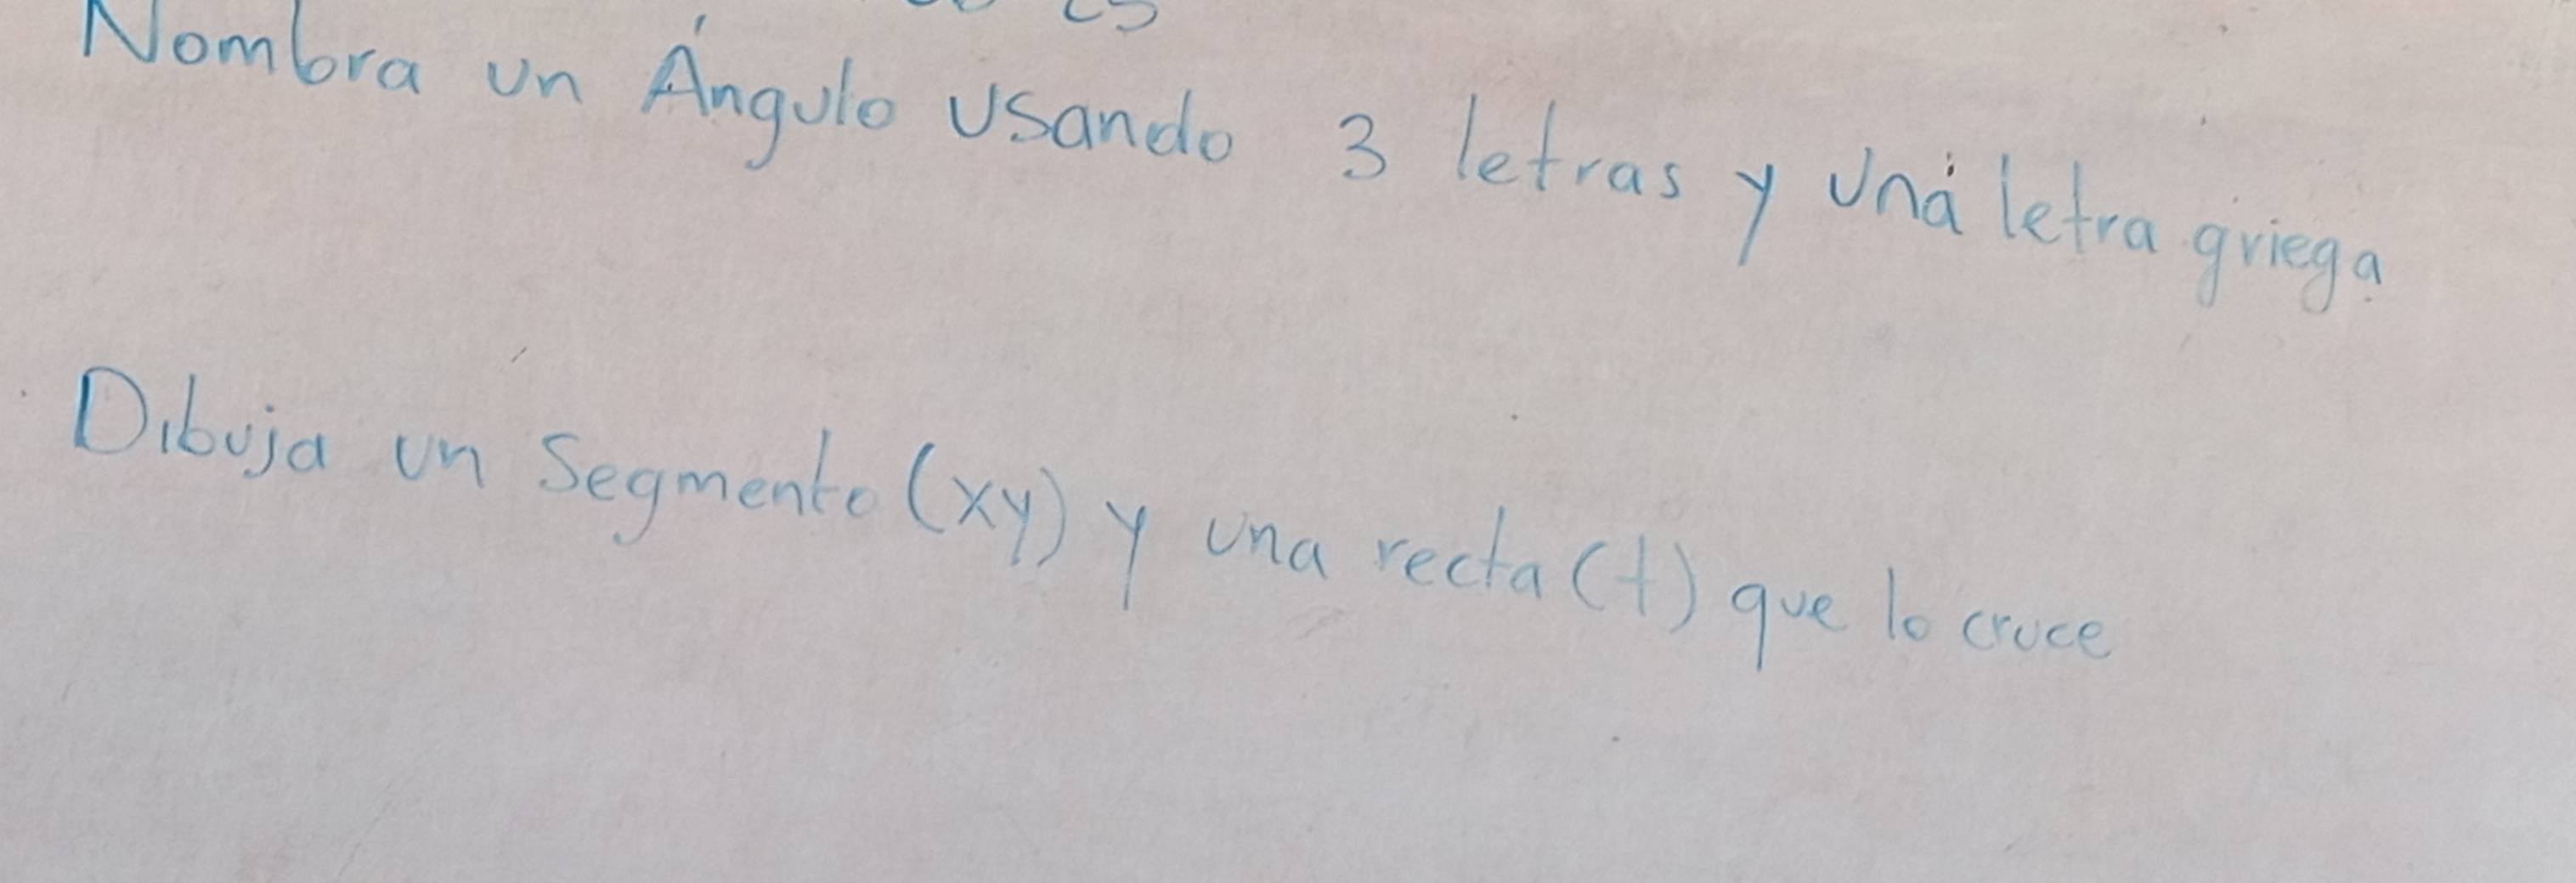 Nombra un Ángulo usando 3 letras y una letra griega
Dibuja un Segmento (xy) y una recta (t) que lo cruce